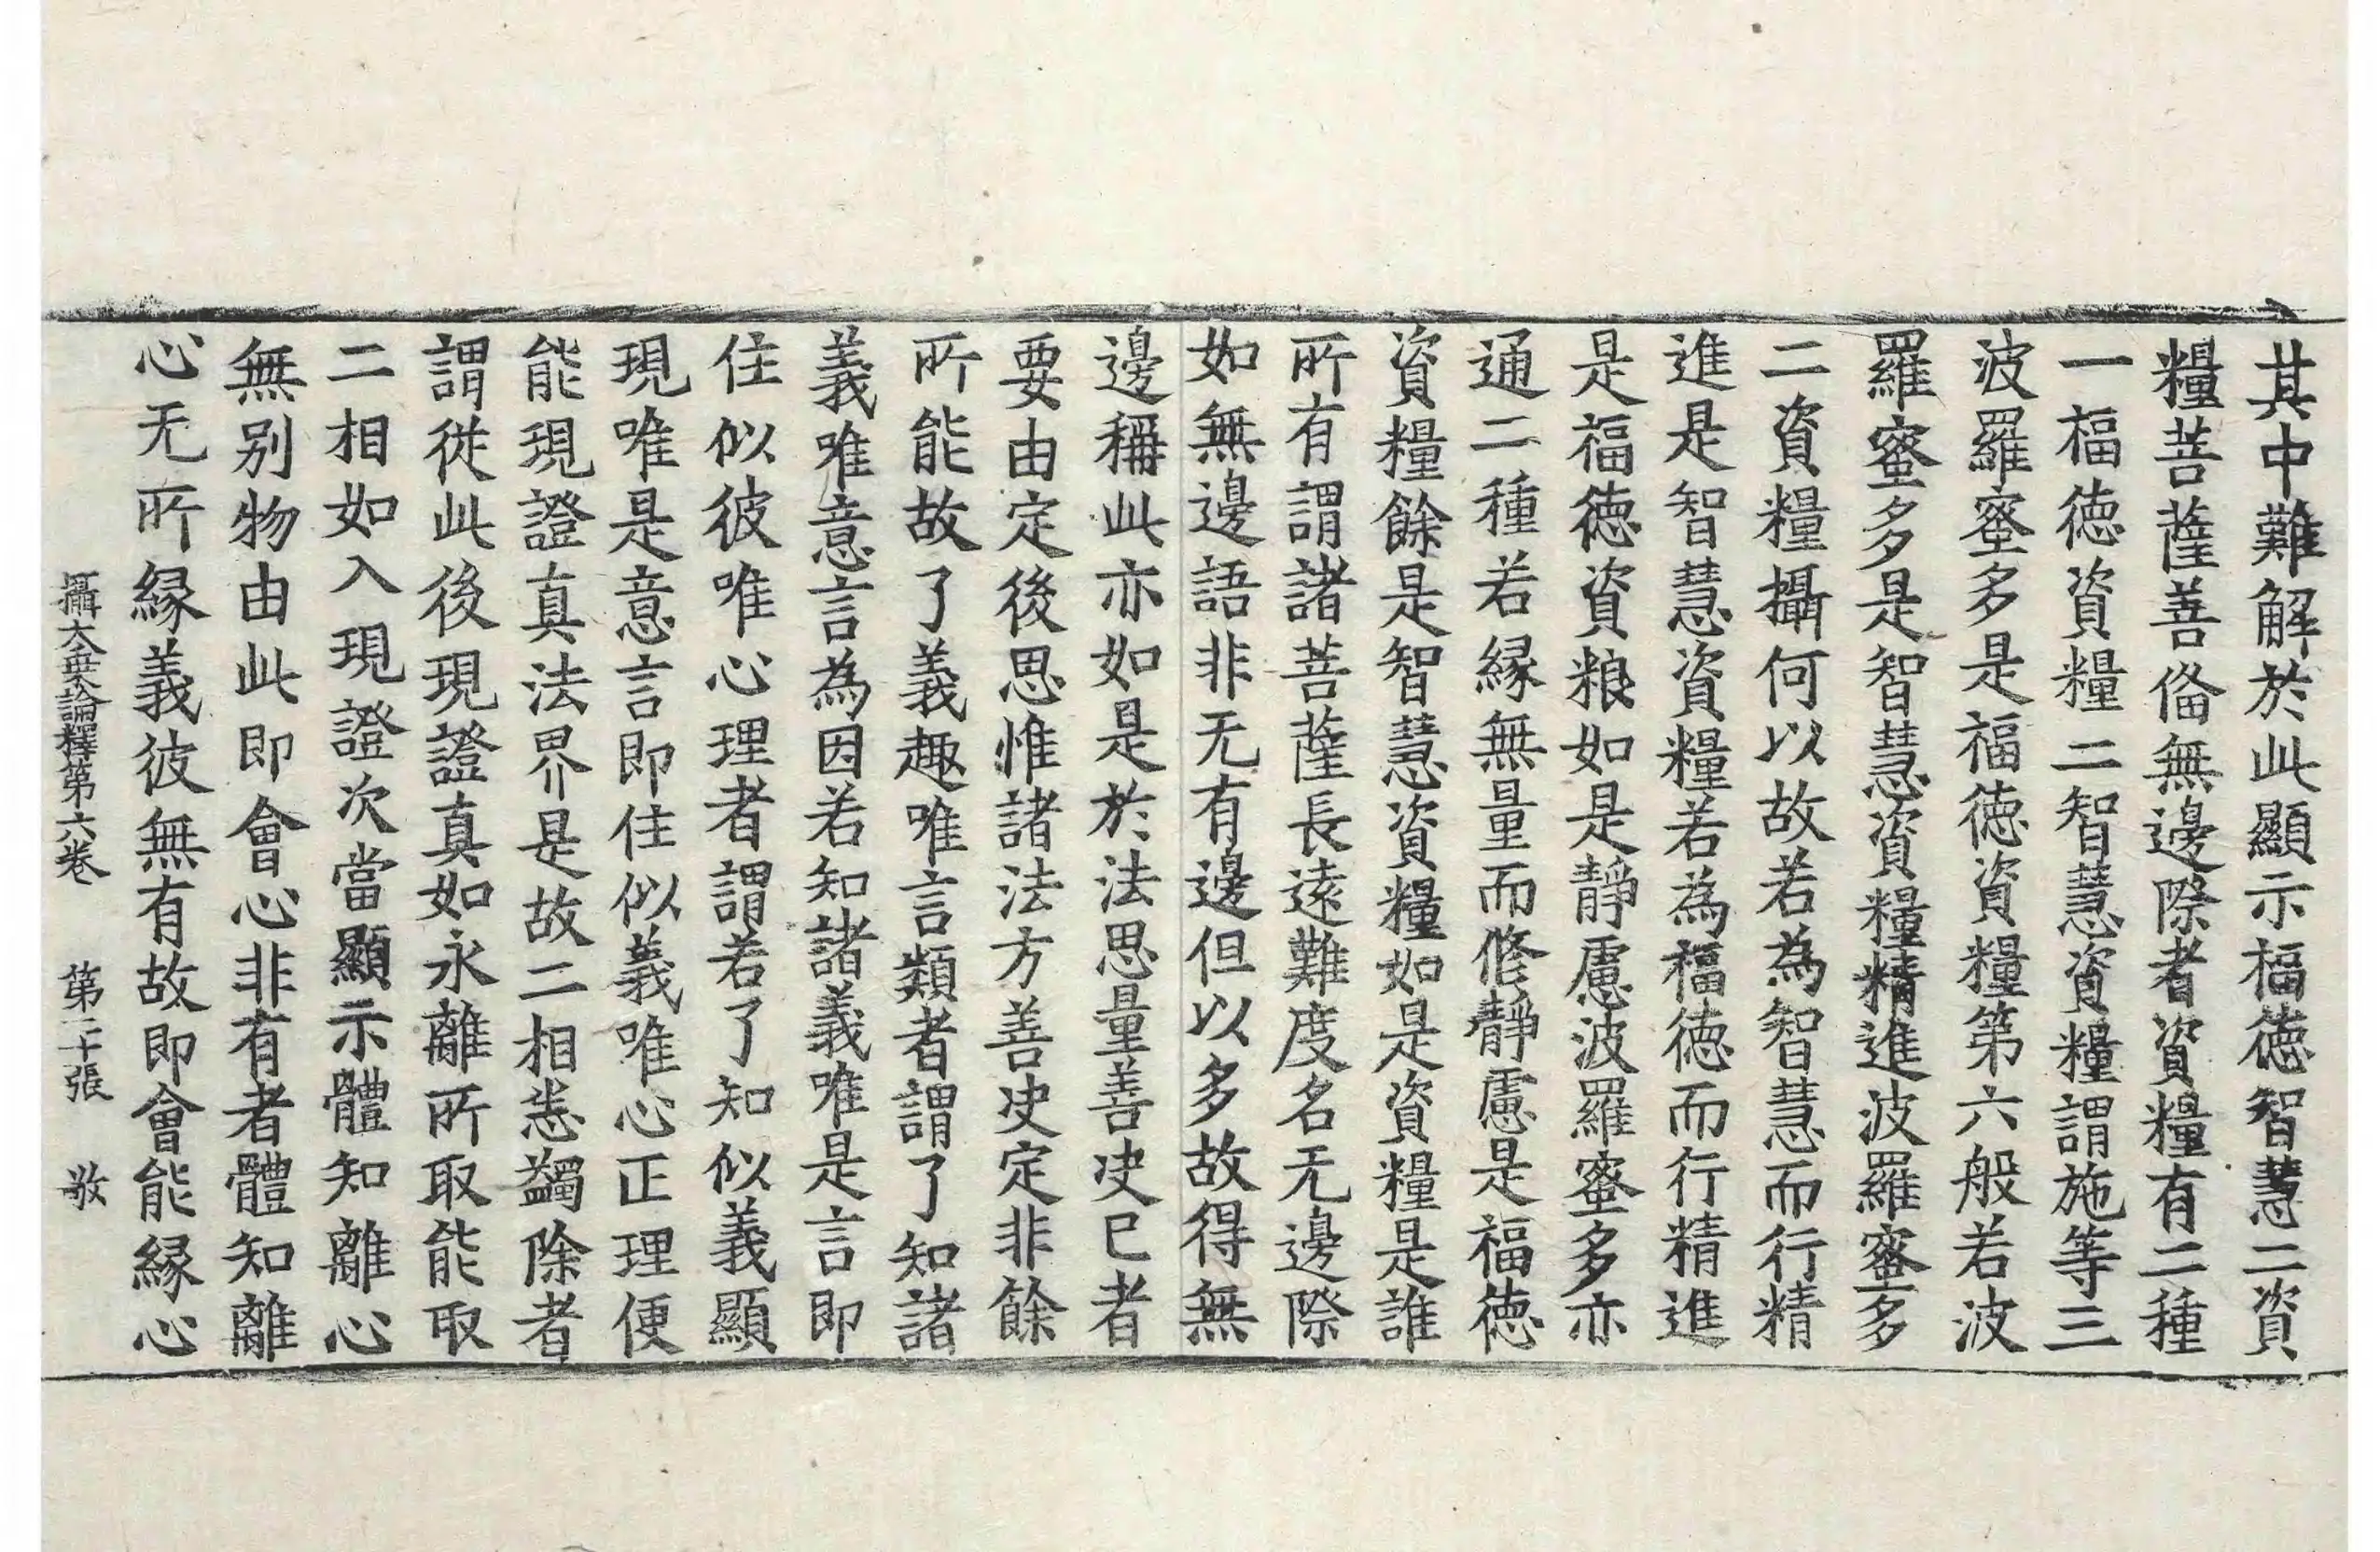 其中難解於此顯示福徳智慧二資
糧菩薩善俻無邊際者資糧有二種
一福徳資糧二智慧資糧謂施等三
波羅蜜多是福徳資糧第六般若波
羅蜜多是智慧資糧精進波羅蜜多
二資糧攝何以故若為智慧而行精
進是智慧資糧若為福徳而行精進
是福徳資粮如是靜慮波羅蜜多亦
通二種若縁無量而修靜慮是福徳
資糧餘是智慧資糧如是資糧是誰
所有謂諸菩薩長遠難度名无邊際
如無邊語非无有邊但以多故得無
邊稱此亦如是於法思量善决已者
要由定後思惟諸法方善决定非餘
所能故了義趣唯言類者謂了知諸
義唯意言為因若知諸義唯是言即
住似彼唯心理者謂若了知似義顯
現唯是意言即住似義唯心正理便
能現證真法界是故二相悉蠲除者
謂從此後現證真如永離所取能取
二相如入現證次當顯示體知離心
無別物由此即會心非有者體知離
心无所縁義彼無有故即會能縁心
攝大乗論釋第六卷 第二十張 敬